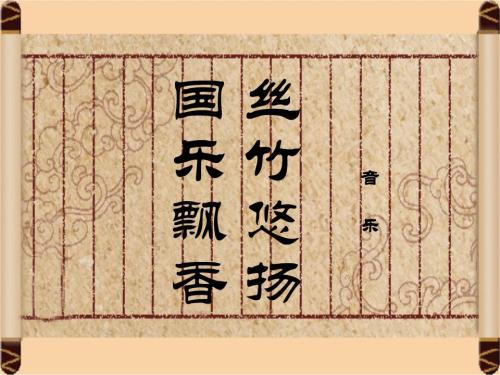 音乐
丝竹悠扬
国乐飘香